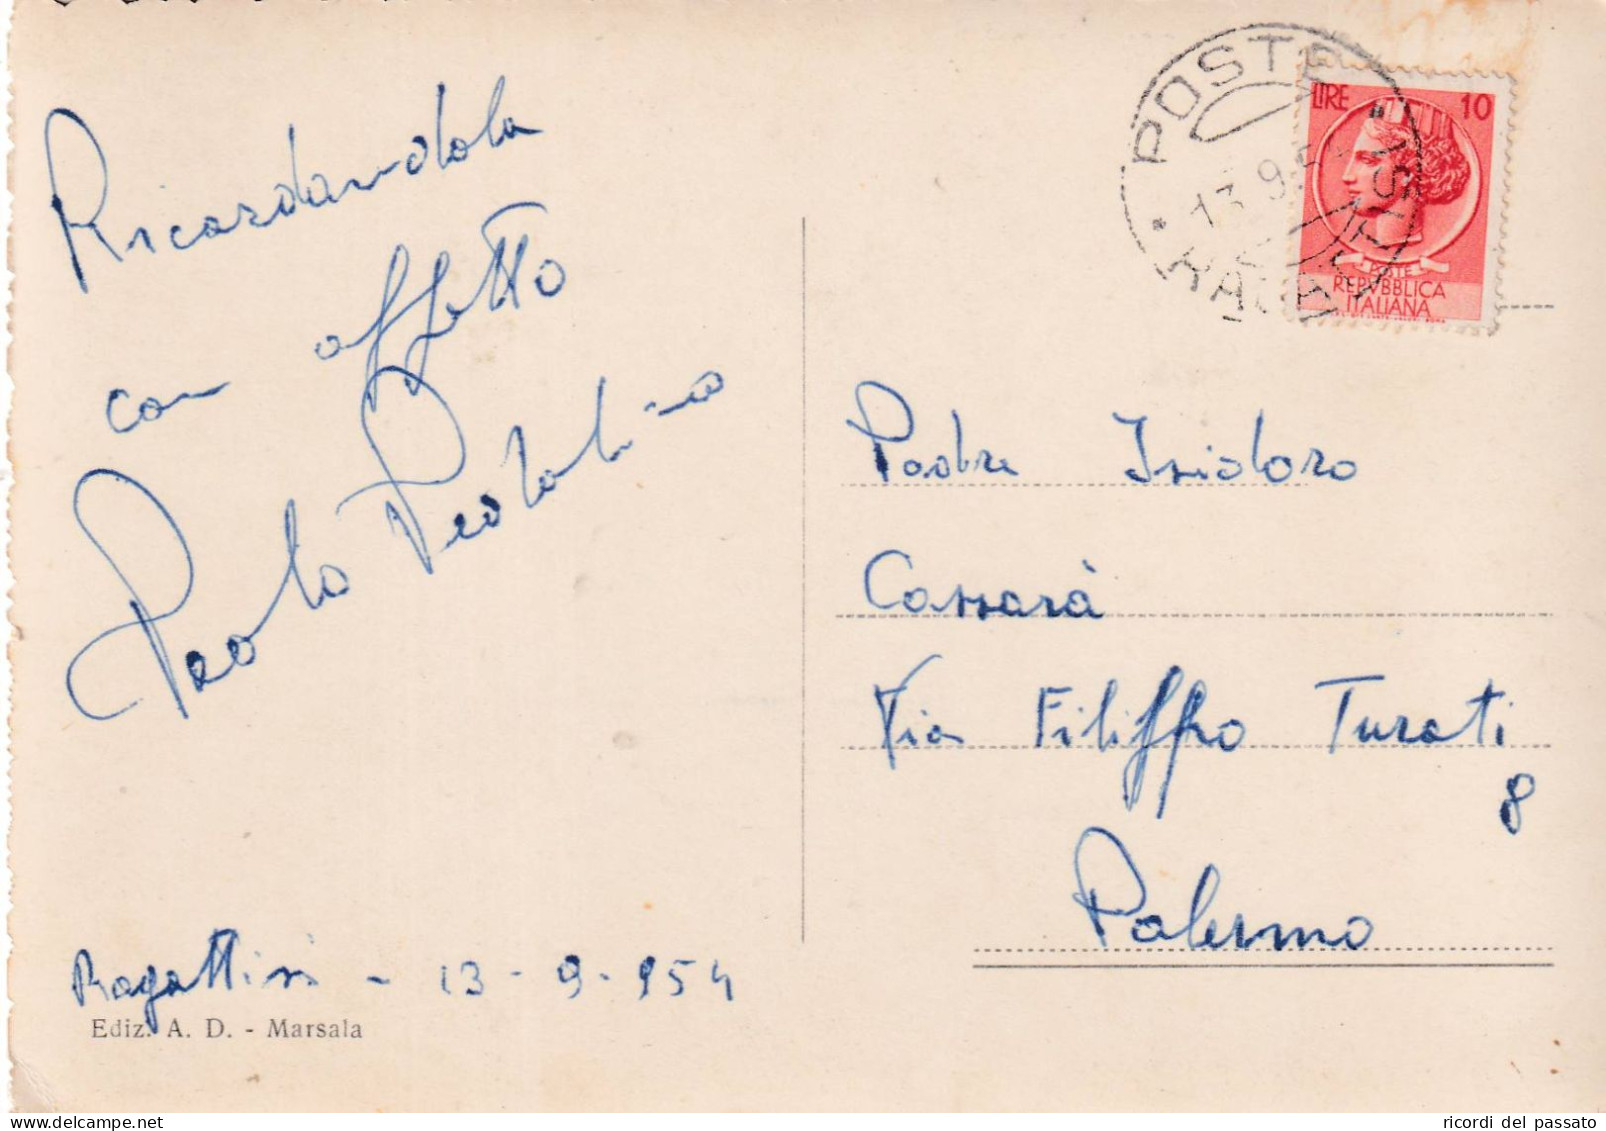 Ricordandola
con affetto
Paolo
Ragattisi - 13-9-954
Ediz. A. D. - Marsala
POSTE ITALIANE
13 9 5
LIRE 10
POSTE
REPVBBLICA
ITALIANA
Padre Isidoro
Cassarà
Via Filippo Turati
8
Palermo
ricordi del passato